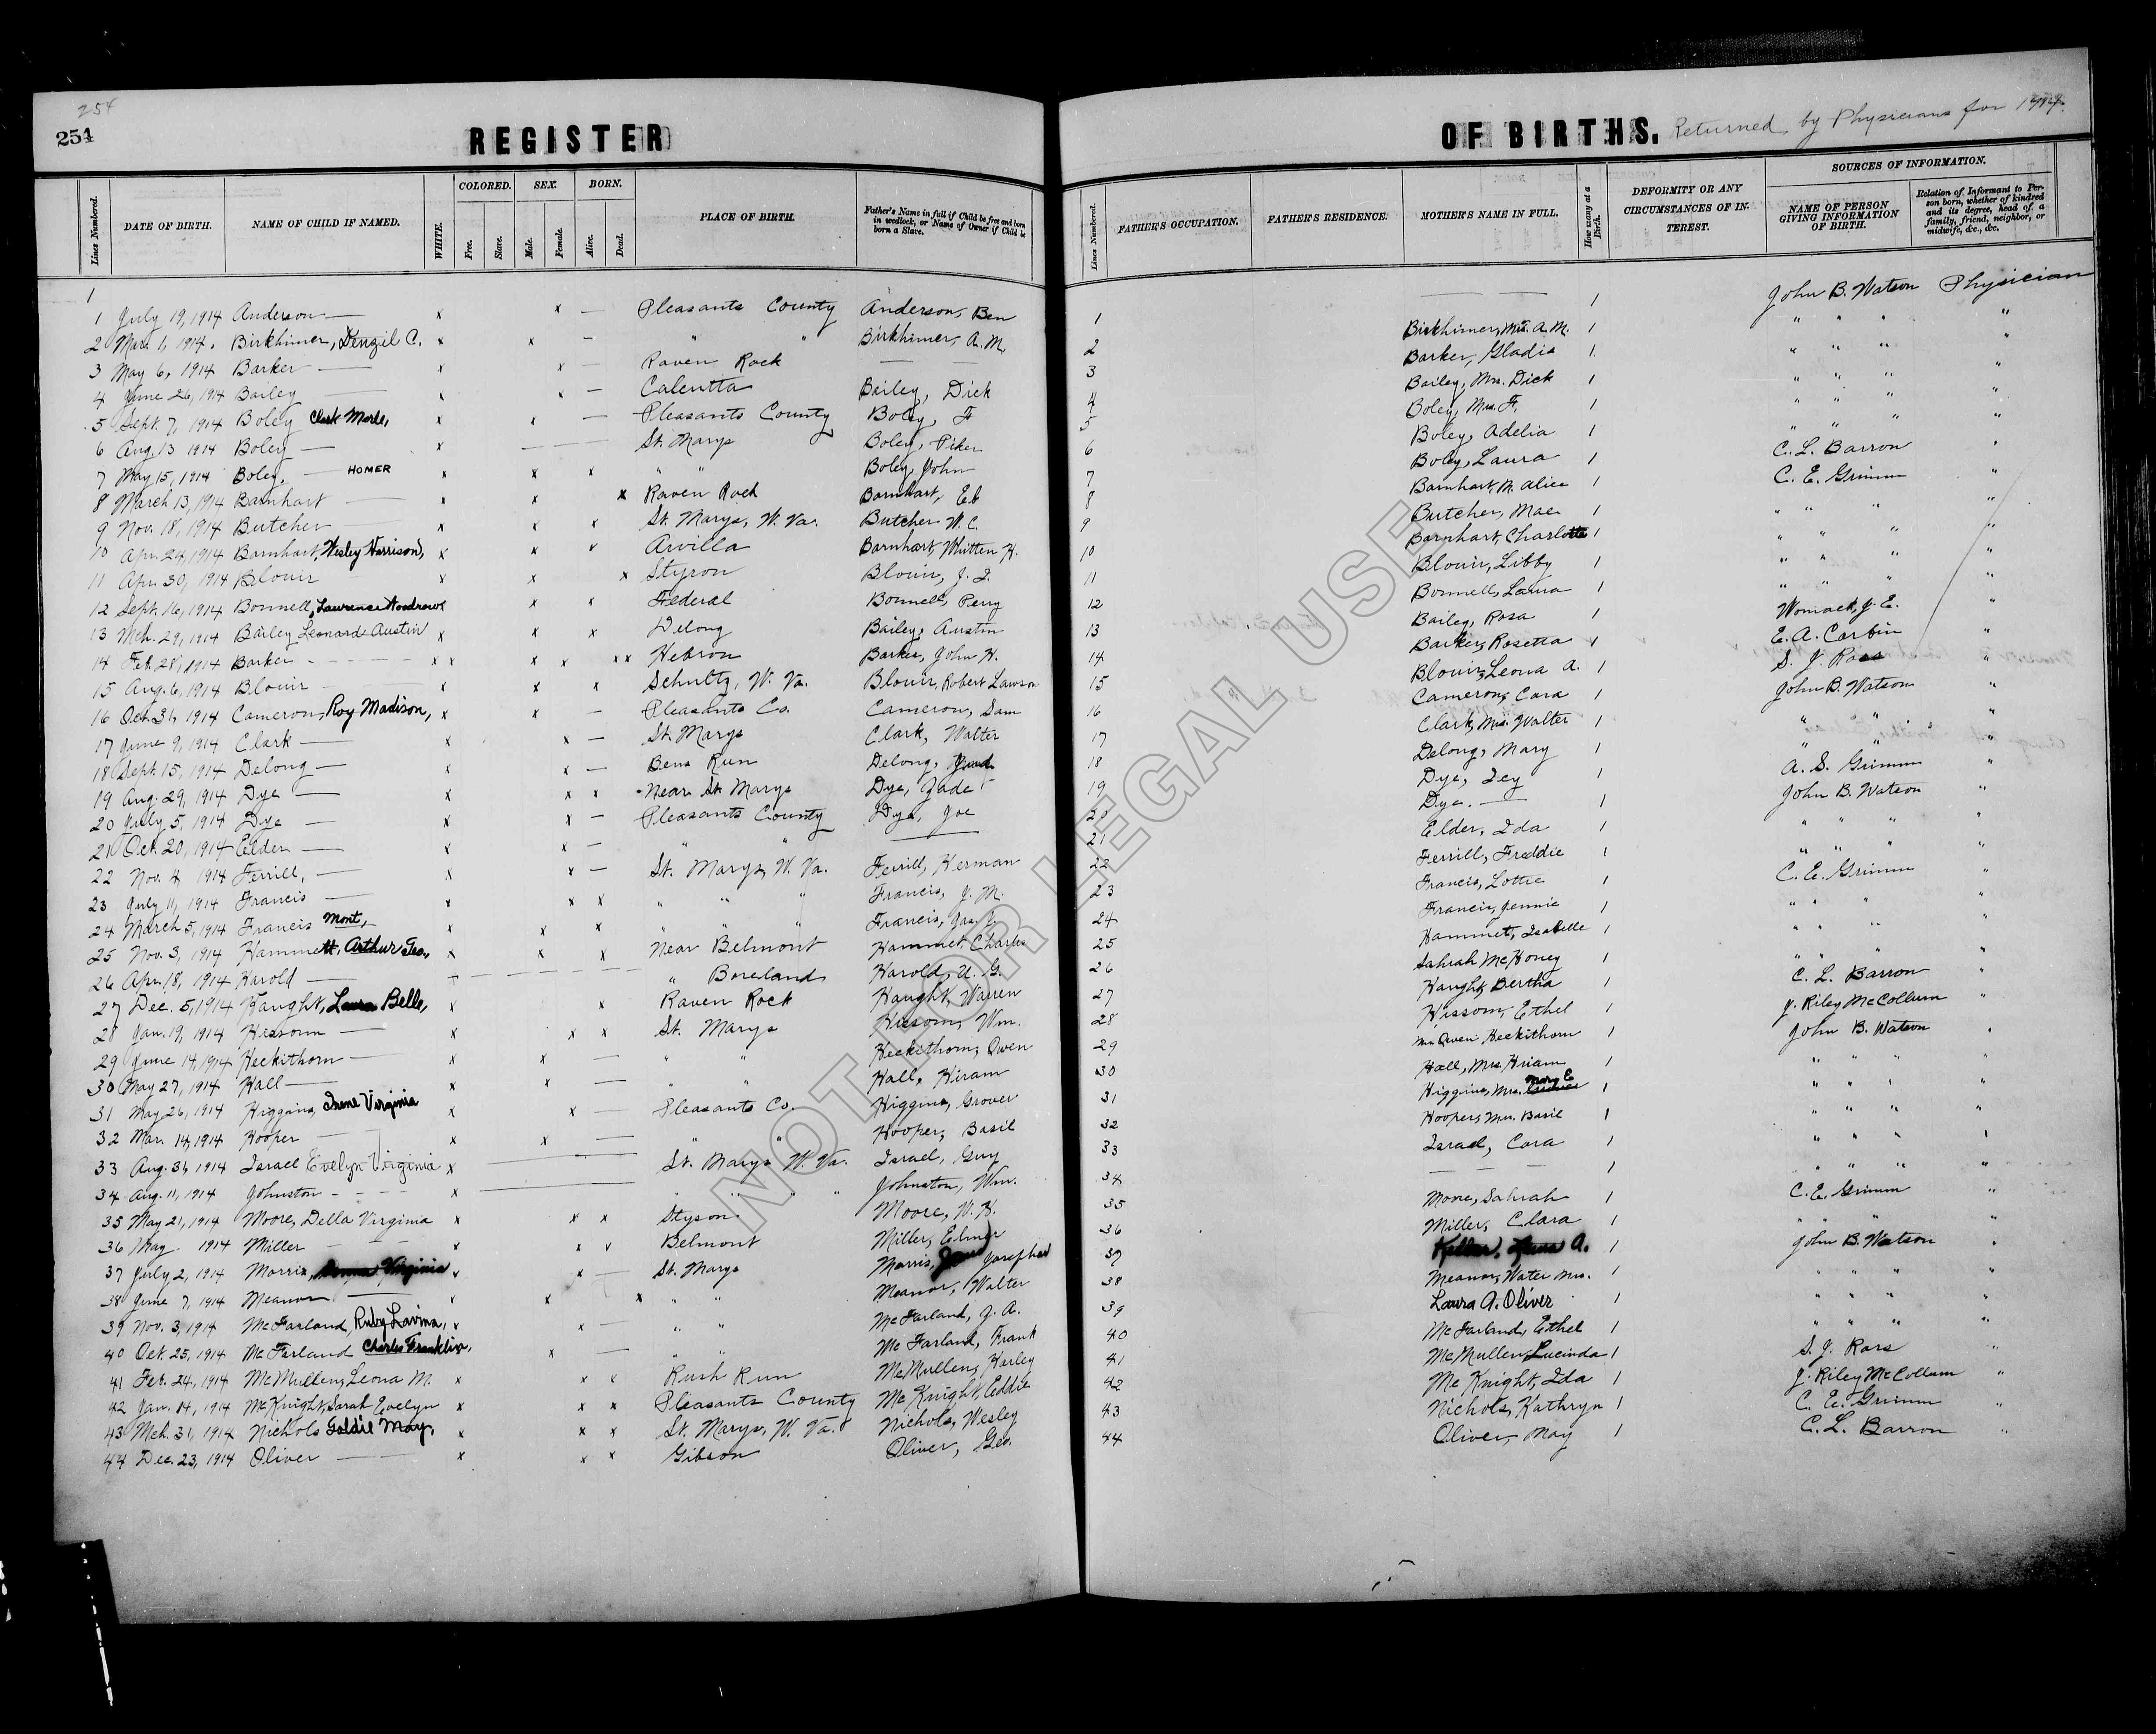 254
254
REGISTER
Lines Numbered.
DATE OF BIRTH.
NAME OF CHILD IF NAMED.
WHITE.
COLORED.
Free.
Slave.
SEX.
Male.
Female.
BORN.
Alive.
Dead.
PLACE OF BIRTH.
Father's Name in full if Child be free and born in wedlock, or Name of Owner if Child be born a Slave.
1
1 July 19, 1914 Anderson — x x — Pleasants County Anderson, Ben
2 Mar. 1, 1914. Birkhimer, Denzil C. x x — " " Birkhimer, A. M.
3 May 6, 1914 Barker — x x — Raven Rock — —
4 June 26, 1914 Bailey — x x — Calcutta Bailey, Dick
5 Sept. 7, 1914 Boley Clark Merle, x x — Pleasants County Boley, F
6 Aug. 13 1914 Boley — x — — — St. Marys Boley, Piker
7 May 15, 1914 Boley, — HOMER x x x " " Boley, John
8 March 13, 1914 Barnhart — x x x Raven Rock Barnhart, Ed
9 Nov. 18, 1914 Butcher — x x x St. Marys, W. Va. Butcher W. C.
10 Apr. 24, 1914 Barnhart, Wesley Harrison, x x x Arvilla Barnhart, Whitten H.
11 Apr. 30, 1914 Blouir x x x Styron Blouir, J. F.
12 Sept. 16, 1914 Bonnell, Lawrence Woodrow x x Federal Bonnell, Perry
13 Mch. 29, 1914 Bailey Leonard Austin x x x Delong Bailey, Austin
14 Feb. 28, 1914 Barker - - - - - x x x x x x Hebron Barker, John H.
15 Aug. 6, 1914 Blouir x x x Schultz, W. Va. Blouir, Robert Lawson
16 Oct. 31, 1914 Cameron, Roy Madison, x x — Pleasants Co. Cameron, Sam
17 June 9, 1914 Clark — x x — St. Marys Clark, Walter
18 Sept. 15, 1914 Delong — x x — Bens Run Delong,
19 Aug. 29, 1914 Dye — x x x Near St. Marys Dye, Zade
20 July 5, 1914 Dye — x x — Pleasants County Dye, Joe
21 Oct. 20, 1914 Elder — x x — " " —
22 Nov. 4, 1914 Ferrill, — x x — St. Marys, W. Va. Ferrill, Herman
23 July 11, 1914 Francis — x x x " " " Francis, J. M.
24 March 5, 1914 Francis Mont, x x x " " " Francis, Jas. J.
25 Nov. 3, 1914 Hammett, Arthur Geo., x x x Near Belmont Hammet, Charles
26 Apr. 18, 1914 Harold — — — — — " Boreland Harold, U. G.
27 Dec. 5, 1914 Haught, Laura Belle, x x Raven Rock Haught, Warren
28 Jan. 19, 1914 Hissom — x x x St. Marys Hissom, Wm.
29 June 14, 1914 Heckithorn — x x — " " Heckithorn, Owen
30 May 27, 1914 Hall — x x — " " Hall, Hiram
31 May 26, 1914 Higgins, Irene Virginia x x — Pleasants Co. Higgins, Grover
32 Mar. 14, 1914 Hooper — x x — " " Hooper, Basil
33 Aug. 31, 1914 Israel Evelyn Virginia x — St. Marys W. Va. Israel, Guy
34 Aug. 11, 1914 Johnston - - - - x — " " " " Johnston, Wm.
35 May 21, 1914 Moore, Della Virginia x x x Styson Moore, W. H.
36 May 1914 Miller — x x x Belmont Miller, Elmer
37 July 2, 1914 Morris, Virginia x x — St. Marys Morris, Josephus
38 June 7, 1914 Meanor — x x x " " Meanor, Walter
39 Nov. 3, 1914 McFarland, Ruby Lavina, x x — " " McFarland, J. A.
40 Oct. 25, 1914 McFarland Charles Franklin, x — " " McFarland, Frank
41 Feb. 24, 1914 McMullen, Leona M. x x x Rush Run McMullen, Harley
42 Jan. 14, 1914 McKnight, Sarah Evelyn x x x Pleasants County McKnight, Eddie
43 Mch. 31, 1914 Nichols Goldie May, x x x St. Marys, W. Va. Nichols, Wesley
44 Dec. 23, 1914 Oliver — x x x Gibson Oliver, Geo.
OF BIRTHS. Returned by Physicians for 1914.
Lines Numbered.
FATHER'S OCCUPATION.
FATHER'S RESIDENCE.
MOTHER'S NAME IN FULL.
How many at a Birth.
DEFORMITY OR ANY CIRCUMSTANCES OF INTEREST.
SOURCES OF INFORMATION.
NAME OF PERSON GIVING INFORMATION OF BIRTH.
Relation of Informant to Person born, whether of kindred and its degree, head of a family, friend, neighbor, or midwife, &c., &c.
1 — — 1 John B. Watson Physician
2 Birkhimer, Mrs. A. M. 1 " " " "
3 Barker, Gladis 1 " " " "
4 Bailey, Mrs. Dick 1 " " " "
5 Boley, Mrs. F. 1 " " " "
6 Boley, Adelia 1 " " " "
7 Boley, Laura 1 C. L. Barron "
8 Barnhart, M. Alice 1 C. E. Grimm "
9 Butcher, Mae 1 " " " "
10 Barnhart, Charlotte 1 " " " "
11 Blouir, Libby 1 " " " "
12 Bonnell, Laura 1 " " " "
13 Bailey, Rosa 1 Womack, J. E. "
14 Barker, Rosetta E. A. Corbin "
15 Blouir, Leona A. 1 S. J. Ross "
16 Cameron, Cara 1 John B. Watson "
17 Clark, Mrs. Walter 1 " " "
18 Delong, Mary 1 " " "
19 Dye, Icy 1 A. S. Grimm "
20 Dye. — 1 John B. Watson "
21 Elder, Ida 1 " " " "
22 Ferrill, Freddie 1 " " " "
23 Francis, Lottie 1 C. E. Grimm "
24 Francis, Jennie 1 " " " "
25 Hammet, Isabelle 1 " " " "
26 Sahrah McHoney 1 " " " "
27 Haught, Bertha 1 C. L. Barron "
28 Hissom, Ethel 1 J. Riley McCollum "
29 Mrs Owen Heckithorn 1 John B. Watson "
30 Hall, Mrs. Hiram 1 " " " "
31 Higgins, Mrs. Mary E 1 " " " "
32 Hooper, Mrs. Basil 1 " " " "
33 Israel, Cora 1 " " " "
34 — — — 1 " " " "
35 Moore, Sahrah 1 C. E. Grimm "
36 Miller, Clara 1 " " " "
37 A. 1 John B. Watson "
38 Meanor, Water Mrs. 1 " " " "
39 Laura A. Oliver 1 " " " "
40 McFarland, Ethel 1 " " " "
41 McMullen, Lucinda 1 S. J. Ross "
42 McKnight, Ida 1 J. Riley McCollum "
43 Nichols, Kathryn 1 C. E. Grimm "
44 Oliver, May 1 C. L. Barron "
NOT FOR LEGAL USE